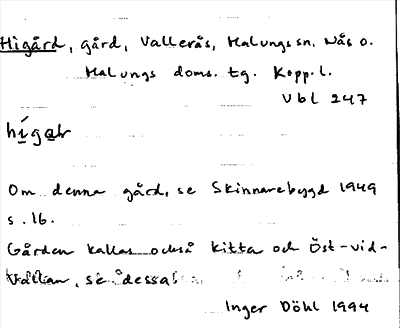 Higård, gård, Vallerås, Malungs sn. Nås o.
Malungs doms. tg. Kopp. l.
Vbl 247
hígar
Om denna gård, se Skinnarebygd 1949
s. 16.
Gården kallas också Kitta och Öst-vid-
Vallan, se dessa!
Inger Döhl 1994